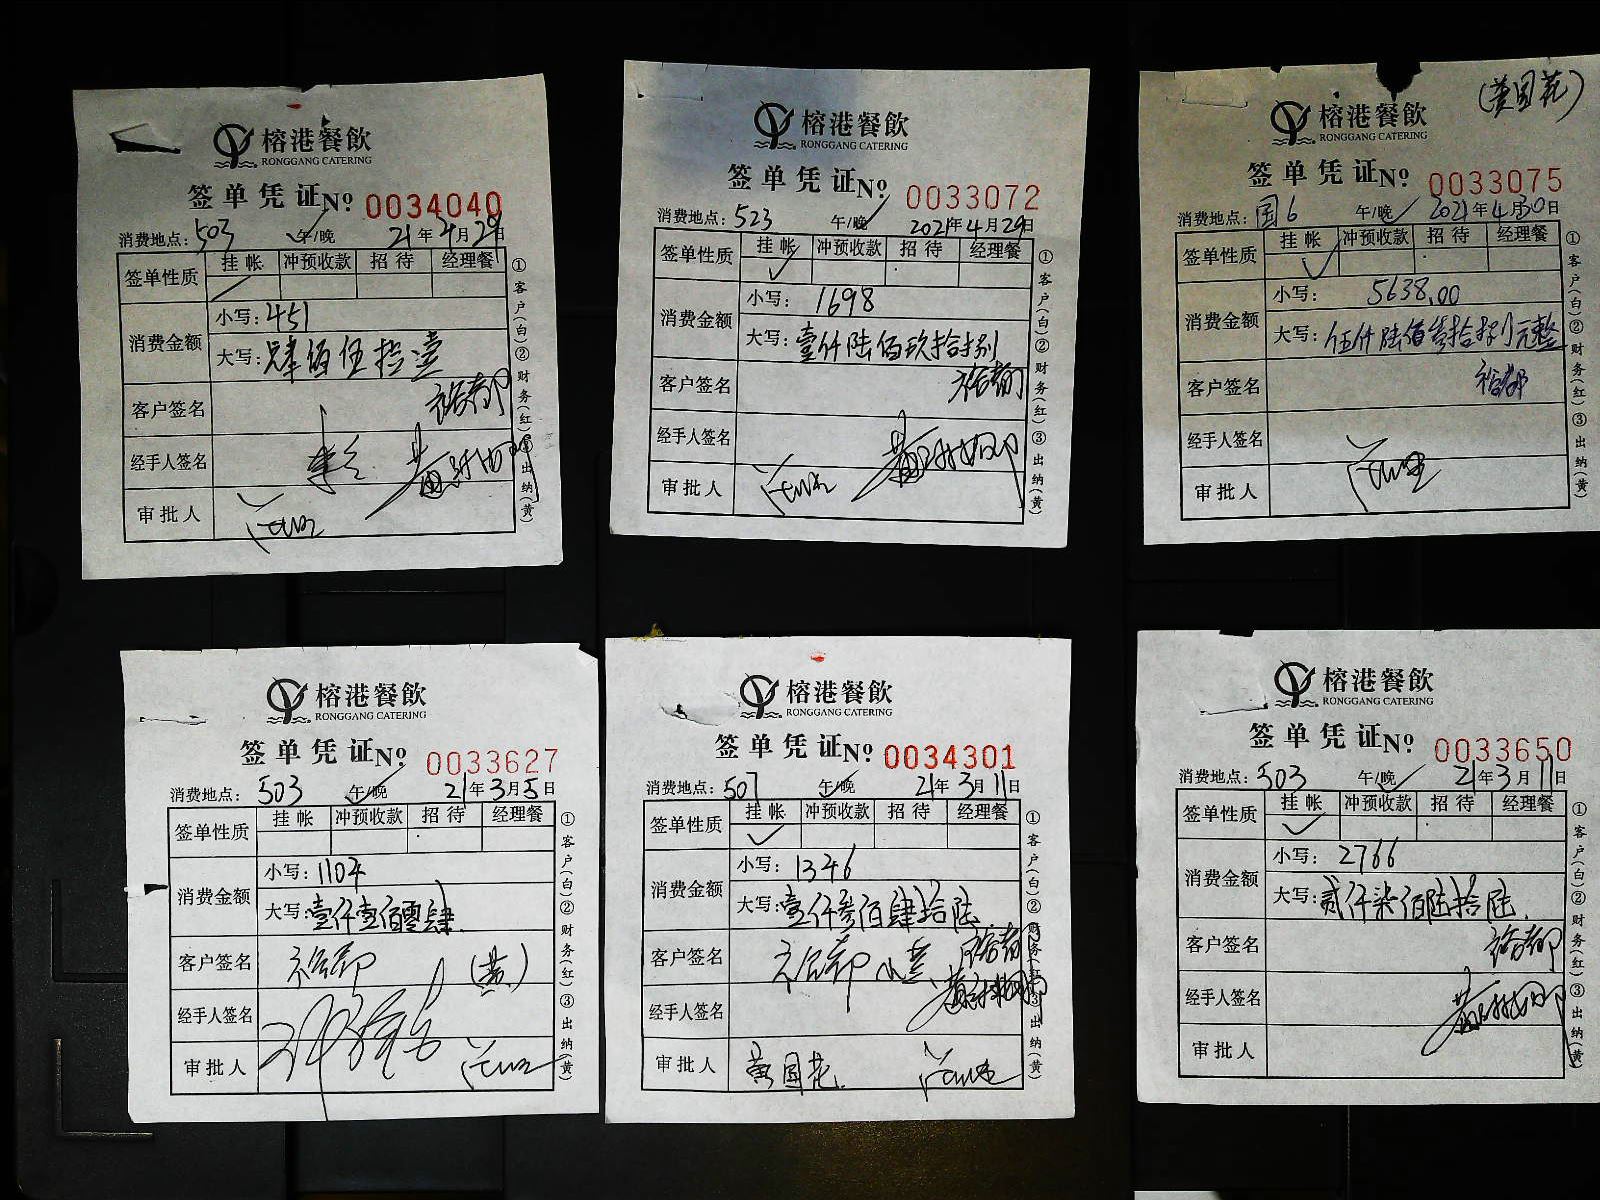 榕港餐飲
RONGGANG CATERING
签单凭证No 0034040
消费地点: 503 午/晚 21年4月29日
签单性质 挂帐 冲预收款 招待 经理餐
消费金额 小写: 451
大写: 肆佰伍拾壹
客户签名 裕都
经手人签名
审批人
①客户(白)②财务(红)③出纳(黄)
榕港餐飲
RONGGANG CATERING
签单凭证No 0033072
消费地点: 523 午/晚 2021年4月29日
签单性质 挂帐 冲预收款 招待 经理餐
消费金额 小写: 1698
大写: 壹仟陆佰玖拾捌
客户签名 裕都
经手人签名
审批人
①客户(白)②财务(红)③出纳(黄)
(黄国花)
榕港餐飲
RONGGANG CATERING
签单凭证No 0033075
消费地点: 国6 午/晚 2021年4月30日
签单性质 挂帐 冲预收款 招待 经理餐
消费金额 小写: 5638.00
大写: 伍仟陆佰叁拾捌元整
客户签名 裕都
经手人签名
审批人
①客户(白)②财务(红)③出纳(黄)
榕港餐飲
RONGGANG CATERING
签单凭证No 0033627
消费地点: 503 午/晚 21年3月5日
签单性质 挂帐 冲预收款 招待 经理餐
消费金额 小写: 1104
大写: 壹仟壹佰零肆
客户签名 裕都 (黄)
经手人签名
审批人
①客户(白)②财务(红)③出纳(黄)
榕港餐飲
RONGGANG CATERING
签单凭证No 0034301
消费地点: 507 午/晚 21年3月11日
签单性质 挂帐 冲预收款 招待 经理餐
消费金额 小写: 1346
大写: 壹仟叁佰肆拾陆
客户签名 裕都 小黄 裕都
经手人签名
审批人 黄国花
①客户(白)②财务(红)③出纳(黄)
榕港餐飲
RONGGANG CATERING
签单凭证No 0033650
消费地点: 503 午/晚 21年3月11日
签单性质 挂帐 冲预收款 招待 经理餐
消费金额 小写: 2766
大写: 贰仟柒佰陆拾陆
客户签名 裕都
经手人签名
审批人
①客户(白)②财务(红)③出纳(黄)